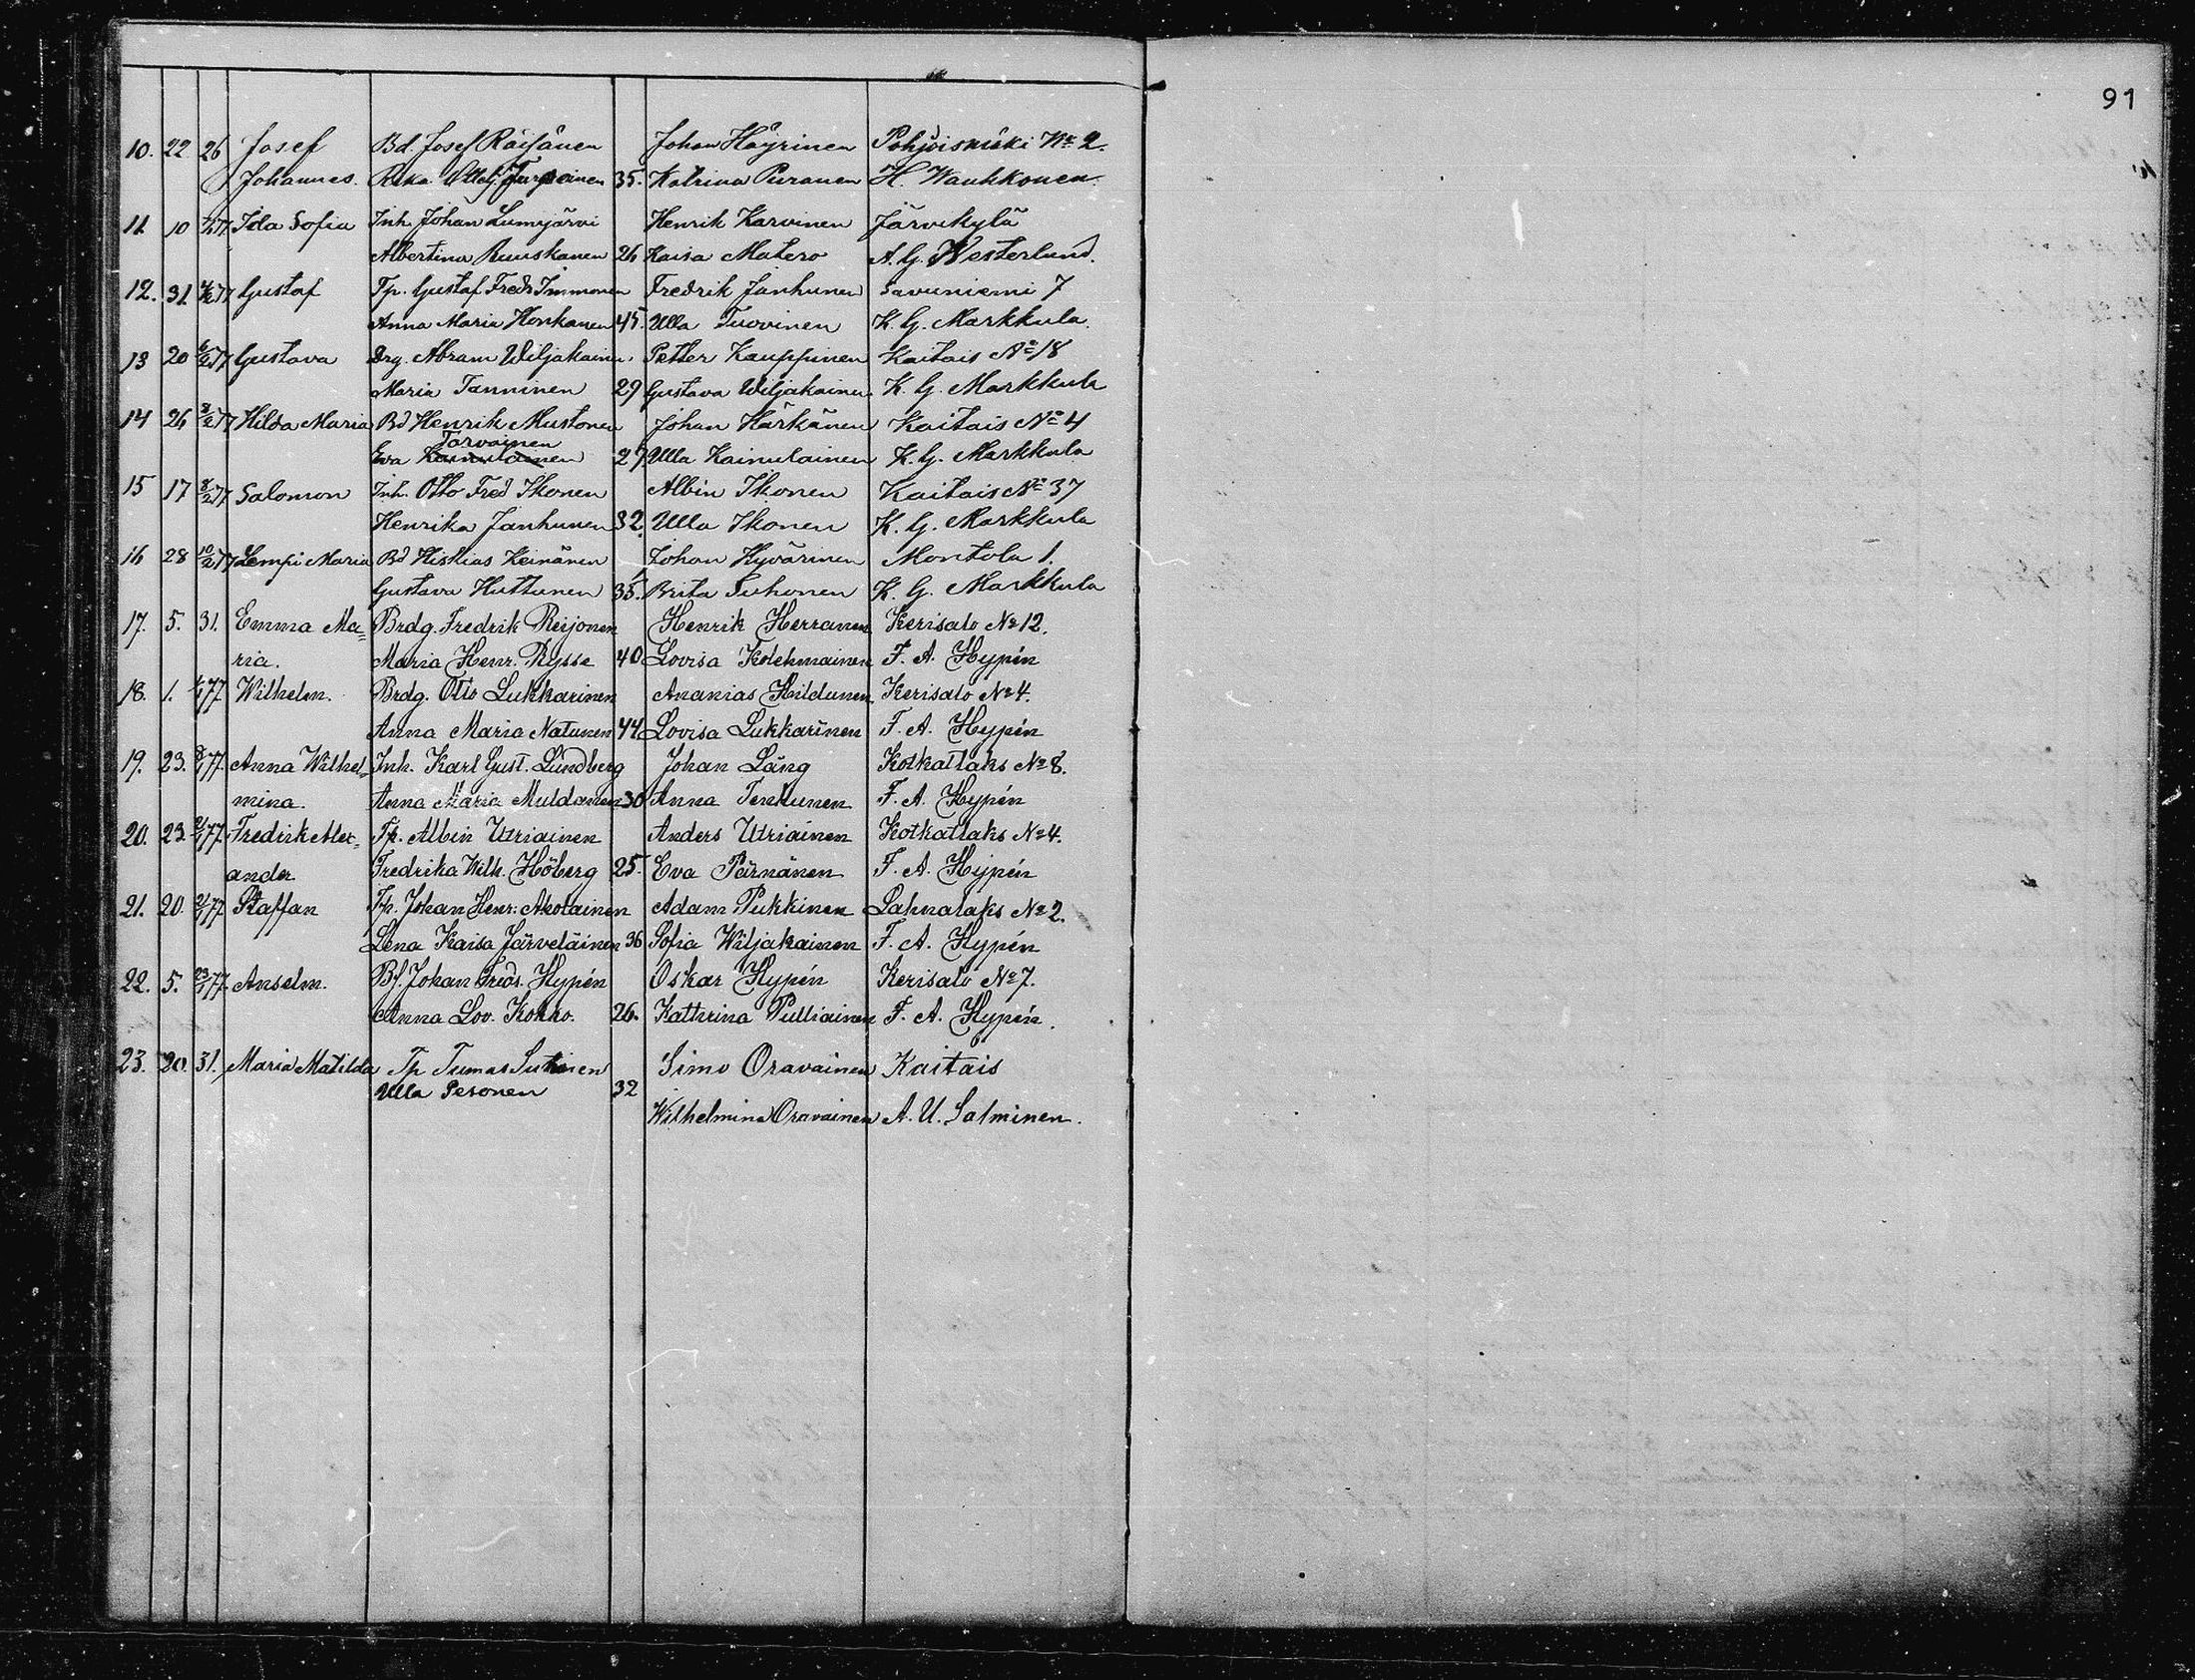 91
10. 22. 26 Josef Bd. Josef Räisänen Johan Häyrinen Pohjoismäki No 2.
Johannes. Rika Turpeinen 35. Katrina Puranen H. Wauhkonen.
11 10 77 Ida Sofia Inh. Johan Lumijärvi Henrik Karvinen Järvikylä
Albertina Ruuskanen 26 Kaisa Matero A. G. Westerlund.
12. 31 77 Gustaf Tp. Gustaf Fredr Immonen Fredrik Janhunen Savuniemi 7
Anna Maria Honkanen 45. Ulla Tuovinen K. G. Markkula.
13 20 6/2 77 Gustava Drg. Abram Wiljakainen Petter Kauppinen Kaitais No 18
Maria Tanninen 29 Gustava Wiljakainen K. G. Markkula
14 26 8/2 77 Hilda Maria Bd Henrik Mustonen Johan Härkänen Kaitais No 4
Tarvainen
Eva Kainulainen 27 Ulla Kainulainen K. G. Markkula
15 17 8/2 77 Salomon Inh. Otto Fred Ikonen Albin Ikonen Kaitais No 37
Henrika Janhunen 32. Ulla Ikonen K. G. Markkula
16 28 10/2 77 Lempi Maria Bd Hiskias Keinänen Johan Hyvärinen Montola 1.
Gustava Huttunen 35. Brita Suhonen K. G. Markkula
17. 5. 31. Emma Ma= Brdg. Fredrik Reijonen Henrik Herranen Kerisalo No 12.
ria. Maria Henr. Rysse 40 Lovisa Kolehmainen F. A. Hypén
18. 1. 77 Wilhelm. Brdg. Otto Lukkarinen Ananias Hildunen Kerisalo No 4.
Anna Maria Natunen 44 Lovisa Lukkarinen F. A. Hypén
19. 23. 77. Anna Wilhel= Inh. Karl Gust. Lundberg Johan Läng Kotkatlaks No 8.
mina. Anna Maria Muldanen 30 Anna Tenhunen F. A. Hypén
20. 23. 21/1 77. Fredrik Alex= Tp. Albin Utriainen Anders Utriainen Kotkatlaks No 4.
ander. Fredrika Wilh. Höberg 25. Eva Pärnänen F. A. Hypén
21. 20. 21/1 77. Staffan Tp. Johan Henr. Akolainen Adam Pukkinen Lahnalaks No 2.
Lena Kaisa Järveläinen 36 Sofia Wiljakainen F. A. Hypén
22. 5. 23/1 77. Anselm. Bf. Johan Freds. Hypén Oskar Hypén Kerisalo No 7.
Anna Lov. Kokko. 26. Kathrina Pulliainen F. A. Hypén.
23. 20. 31. Maria Matilda Tp Tumas Sutinen Simo Oravainen Kaitais
Ulla Pesonen 32
Wilhelmina Oravainen A. U. Salminen.